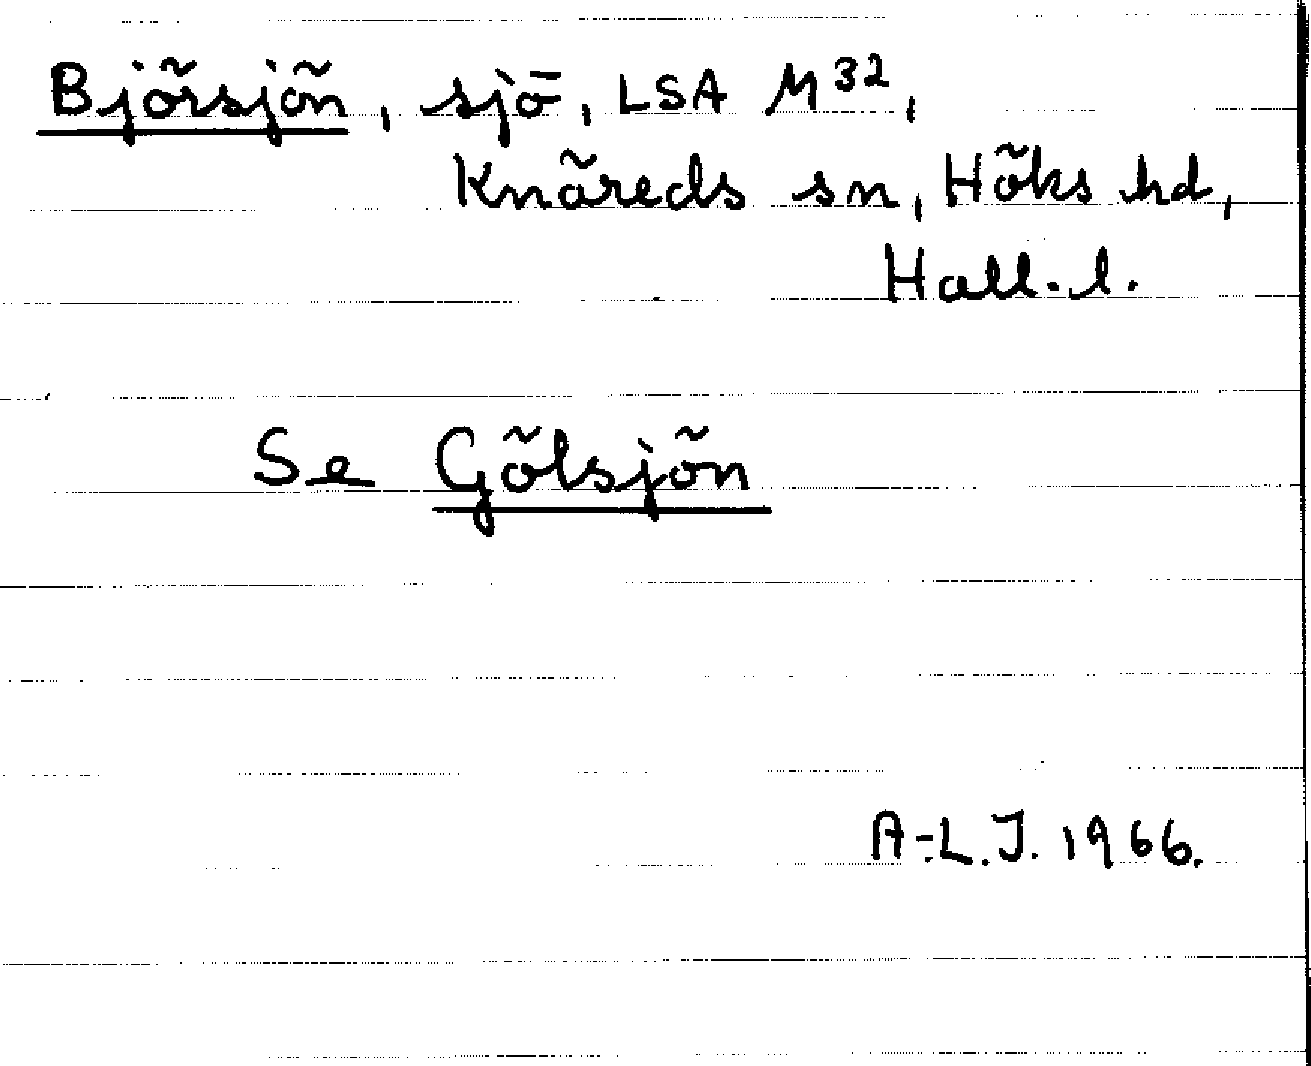 Björsjön, sjö, LSA M32,
Knäreds sn, Höks hd,
Hall. l.
Se Gölsjön
A-L.J. 1966.